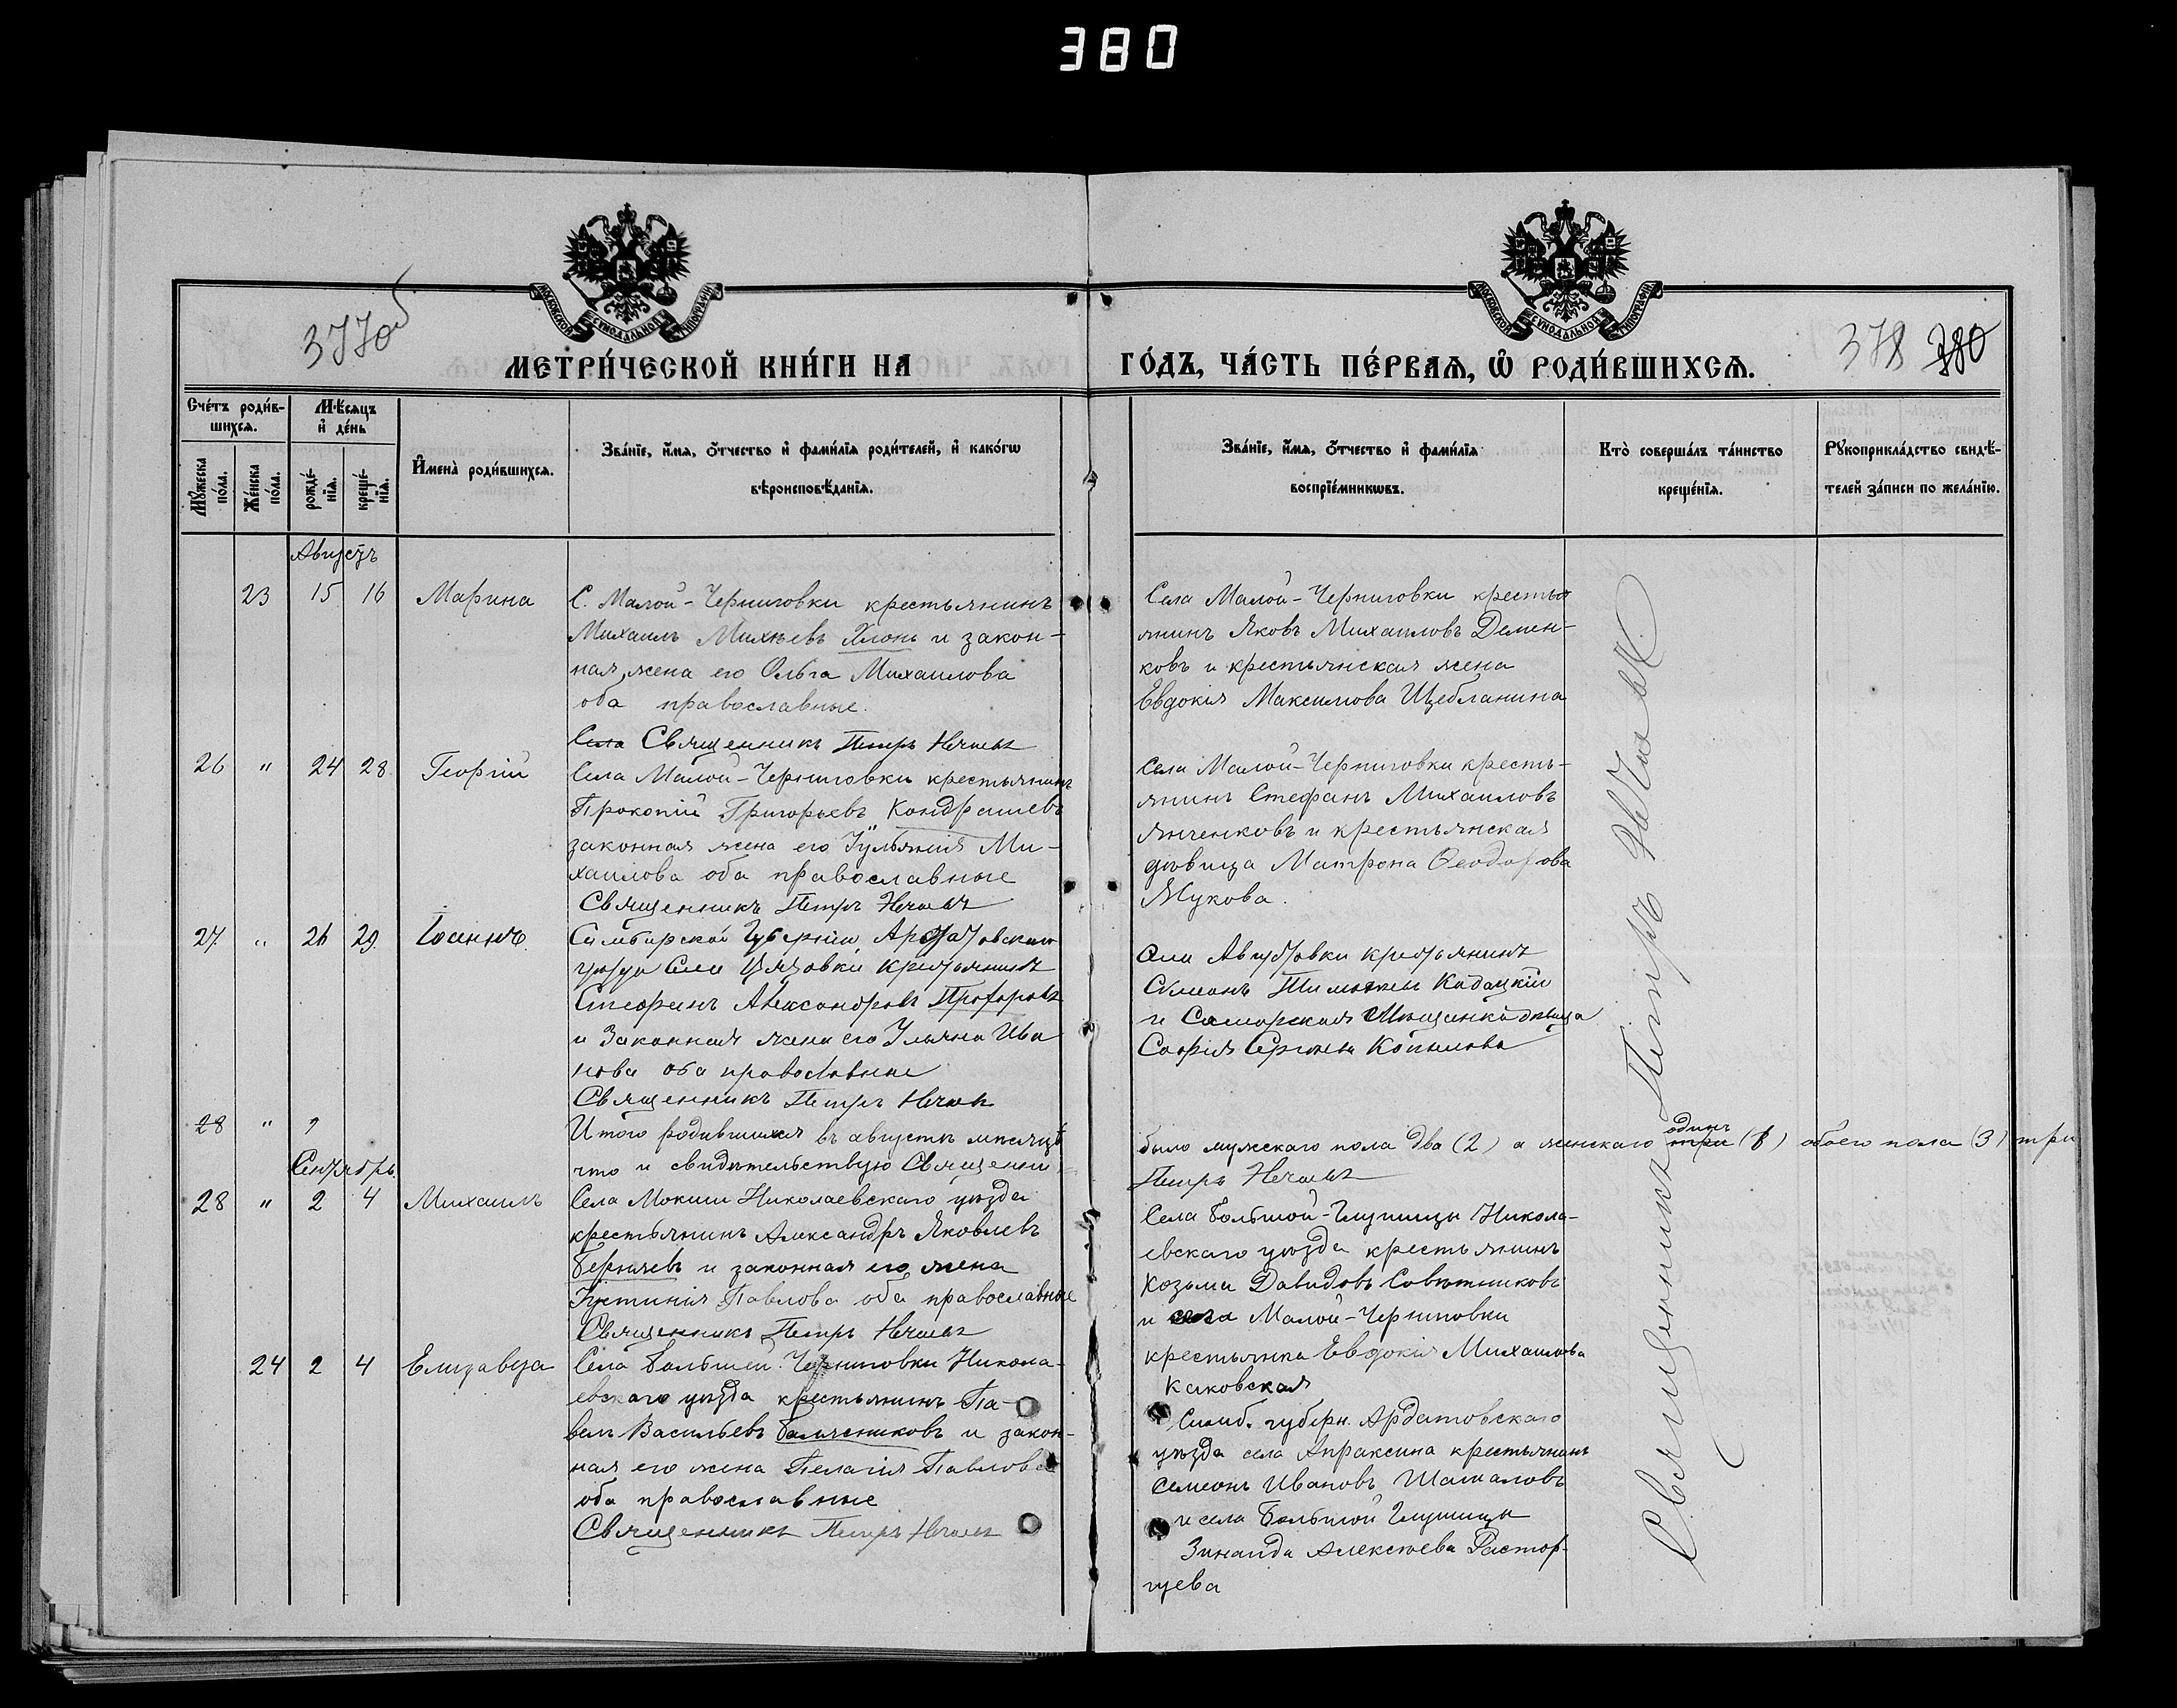 380
377об
МЕТРИ́ЧЕСКОЙ КНИ́ГИ НА
ГО́ДЪ, ЧА́СТЬ ПЕ́РВАѦ, Ѡ҆ РОДИ́ВШИХСѦ.
378 380
МОСКОВСКОЙ СѴНОДАЛЬНОЙ ТИПОГРАФІИ
МОСКОВСКОЙ СѴНОДАЛЬНОЙ ТИПОГРАФІИ
Сче́тъ роди́в-
шихсѧ.
Мꙋ́жеска по́ла.
Же́нска по́ла.
Мѣ́сѧцъ
и҆ де́нь
рожде́-
нїѧ.
креще́-
нїѧ.
И҆мена̀ роди́вшихсѧ.
Зва́нїе, и҆́мѧ, ѻ҆́тчество и҆ фами́лїѧ роди́телей, и҆ како́гѡ
вѣроисповѣ́данїѧ.
Зва́нїе, и҆́мѧ, ѻ҆́тчество и҆ фами́лїѧ
воспрїе́мникѡвъ.
Кто̀ соверша́лъ та́инство
креще́нїѧ.
Рꙋкоприкла́дство свидѣ́-
телей за́писи по жела́нїю.
Августъ
23 15 16 Марина
С. Малой-Черниговки крестьянинъ
Михаилъ Михѣевъ Клонь и закон-
ная жена его Ольга Михаилова
оба православные.
Села Священникъ Петръ Нечаевъ
Села Малой-Черниговки крестья
янинъ Яковъ Михаиловъ Демен-
ковъ и крестьянская жена
Евдокія Максимова Щебланина
26 " 24 28 Георгій
Села Малой-Черниговки крестьянинъ
Прокопій Григорьевъ Кондрашевъ
законная жена его Іульянія Ми-
хаилова оба православные
Священникъ Петръ Нечаевъ
Села Малой-Черниговки кресть-
янинъ Стефанъ Михаиловъ
Янченковъ и крестьянская
дѣвица Матрона Ѳеодорова
Жукова.
27. " 26 29. Іоаннъ.
Симбирской Губерніи Ардатовскаго
уѣзда Села крестьянинъ
Стефанъ Александровъ Прохоровъ
и Законная жена его Ульяна Ива
нова оба православные
Священникъ Петръ Нечаевъ
Села Августовки крестьянинъ
Симеонъ Тимофеевъ Кадацкій
и Самарская Мѣщенка дѣвица
Софія Сергѣева Копылова
28 "
Итого родившихся въ августѣ мѣсяцѣ
что и свидѣтельствую Священни
было мужскаго пола два (2) а женскаго три одинъ (1) обоего пола (3) три
Петръ Нечаевъ
Сентябрь.
28 " 2 4 Михаилъ
Села Мокши Николаевскаго уѣзда
крестьянинъ Александръ Яковлевъ
Берячевъ и законная его жена
Іустинія Павлова оба православные
Священникъ Петръ Нечаевъ
Села Большой-Глушицы Никола-
евскаго уѣзда крестьянинъ
Козьма Давидовъ Совѣтниковъ
и села Малой-Черниговки
крестьянка Евдокія Михаилова
Каковская
24 2 4 Елизавета
Села Большей Черниговки Никола-
евскаго уѣзда крестьянинъ Па-
велъ Васильевъ и закон-
ная его жена Пелагія Павлова
оба православные
Священникъ Петръ Нечаевъ
Симб. губерн. Ардатовскаго
уѣзда села Апраксина крестьянинъ
Симеонъ Ивановъ Шаталовъ
и села Большой Глушицы
Зинаида Алексѣева Растор-
гуева
Священникъ Петръ Нечаевъ